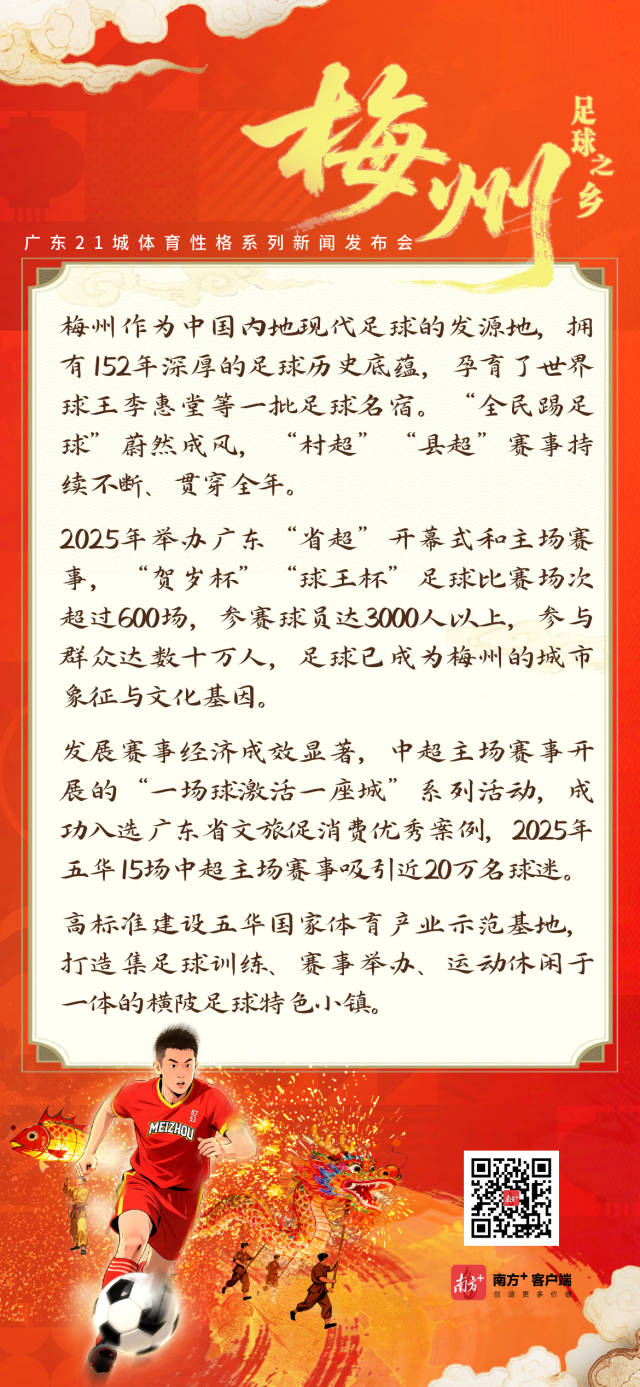 梅州
足球之乡
广东21城体育性格系列新闻发布会
梅州作为中国内地现代足球的发源地，拥
有152年深厚的足球历史底蕴，孕育了世界
球王李惠堂等一批足球名宿。“全民踢足
球”蔚然成风，“村超”“县超”赛事持
续不断、贯穿全年。
2025年举办广东“省超”开幕式和主场赛
事，“贺岁杯”“球王杯”足球比赛场次
超过600场，参赛球员达3000人以上，参与
群众达数十万人，足球已成为梅州的城市
象征与文化基因。
发展赛事经济成效显著，中超主场赛事开
展的“一场球激活一座城”系列活动，成
功入选广东省文旅促消费优秀案例，2025年
五华15场中超主场赛事吸引近20万名球迷。
高标准建设五华国家体育产业示范基地，
打造集足球训练、赛事举办、运动休闲于
一体的横陂足球特色小镇。
MEIZHOU
南方+
南方+ 南方+客户端
创造更多价值